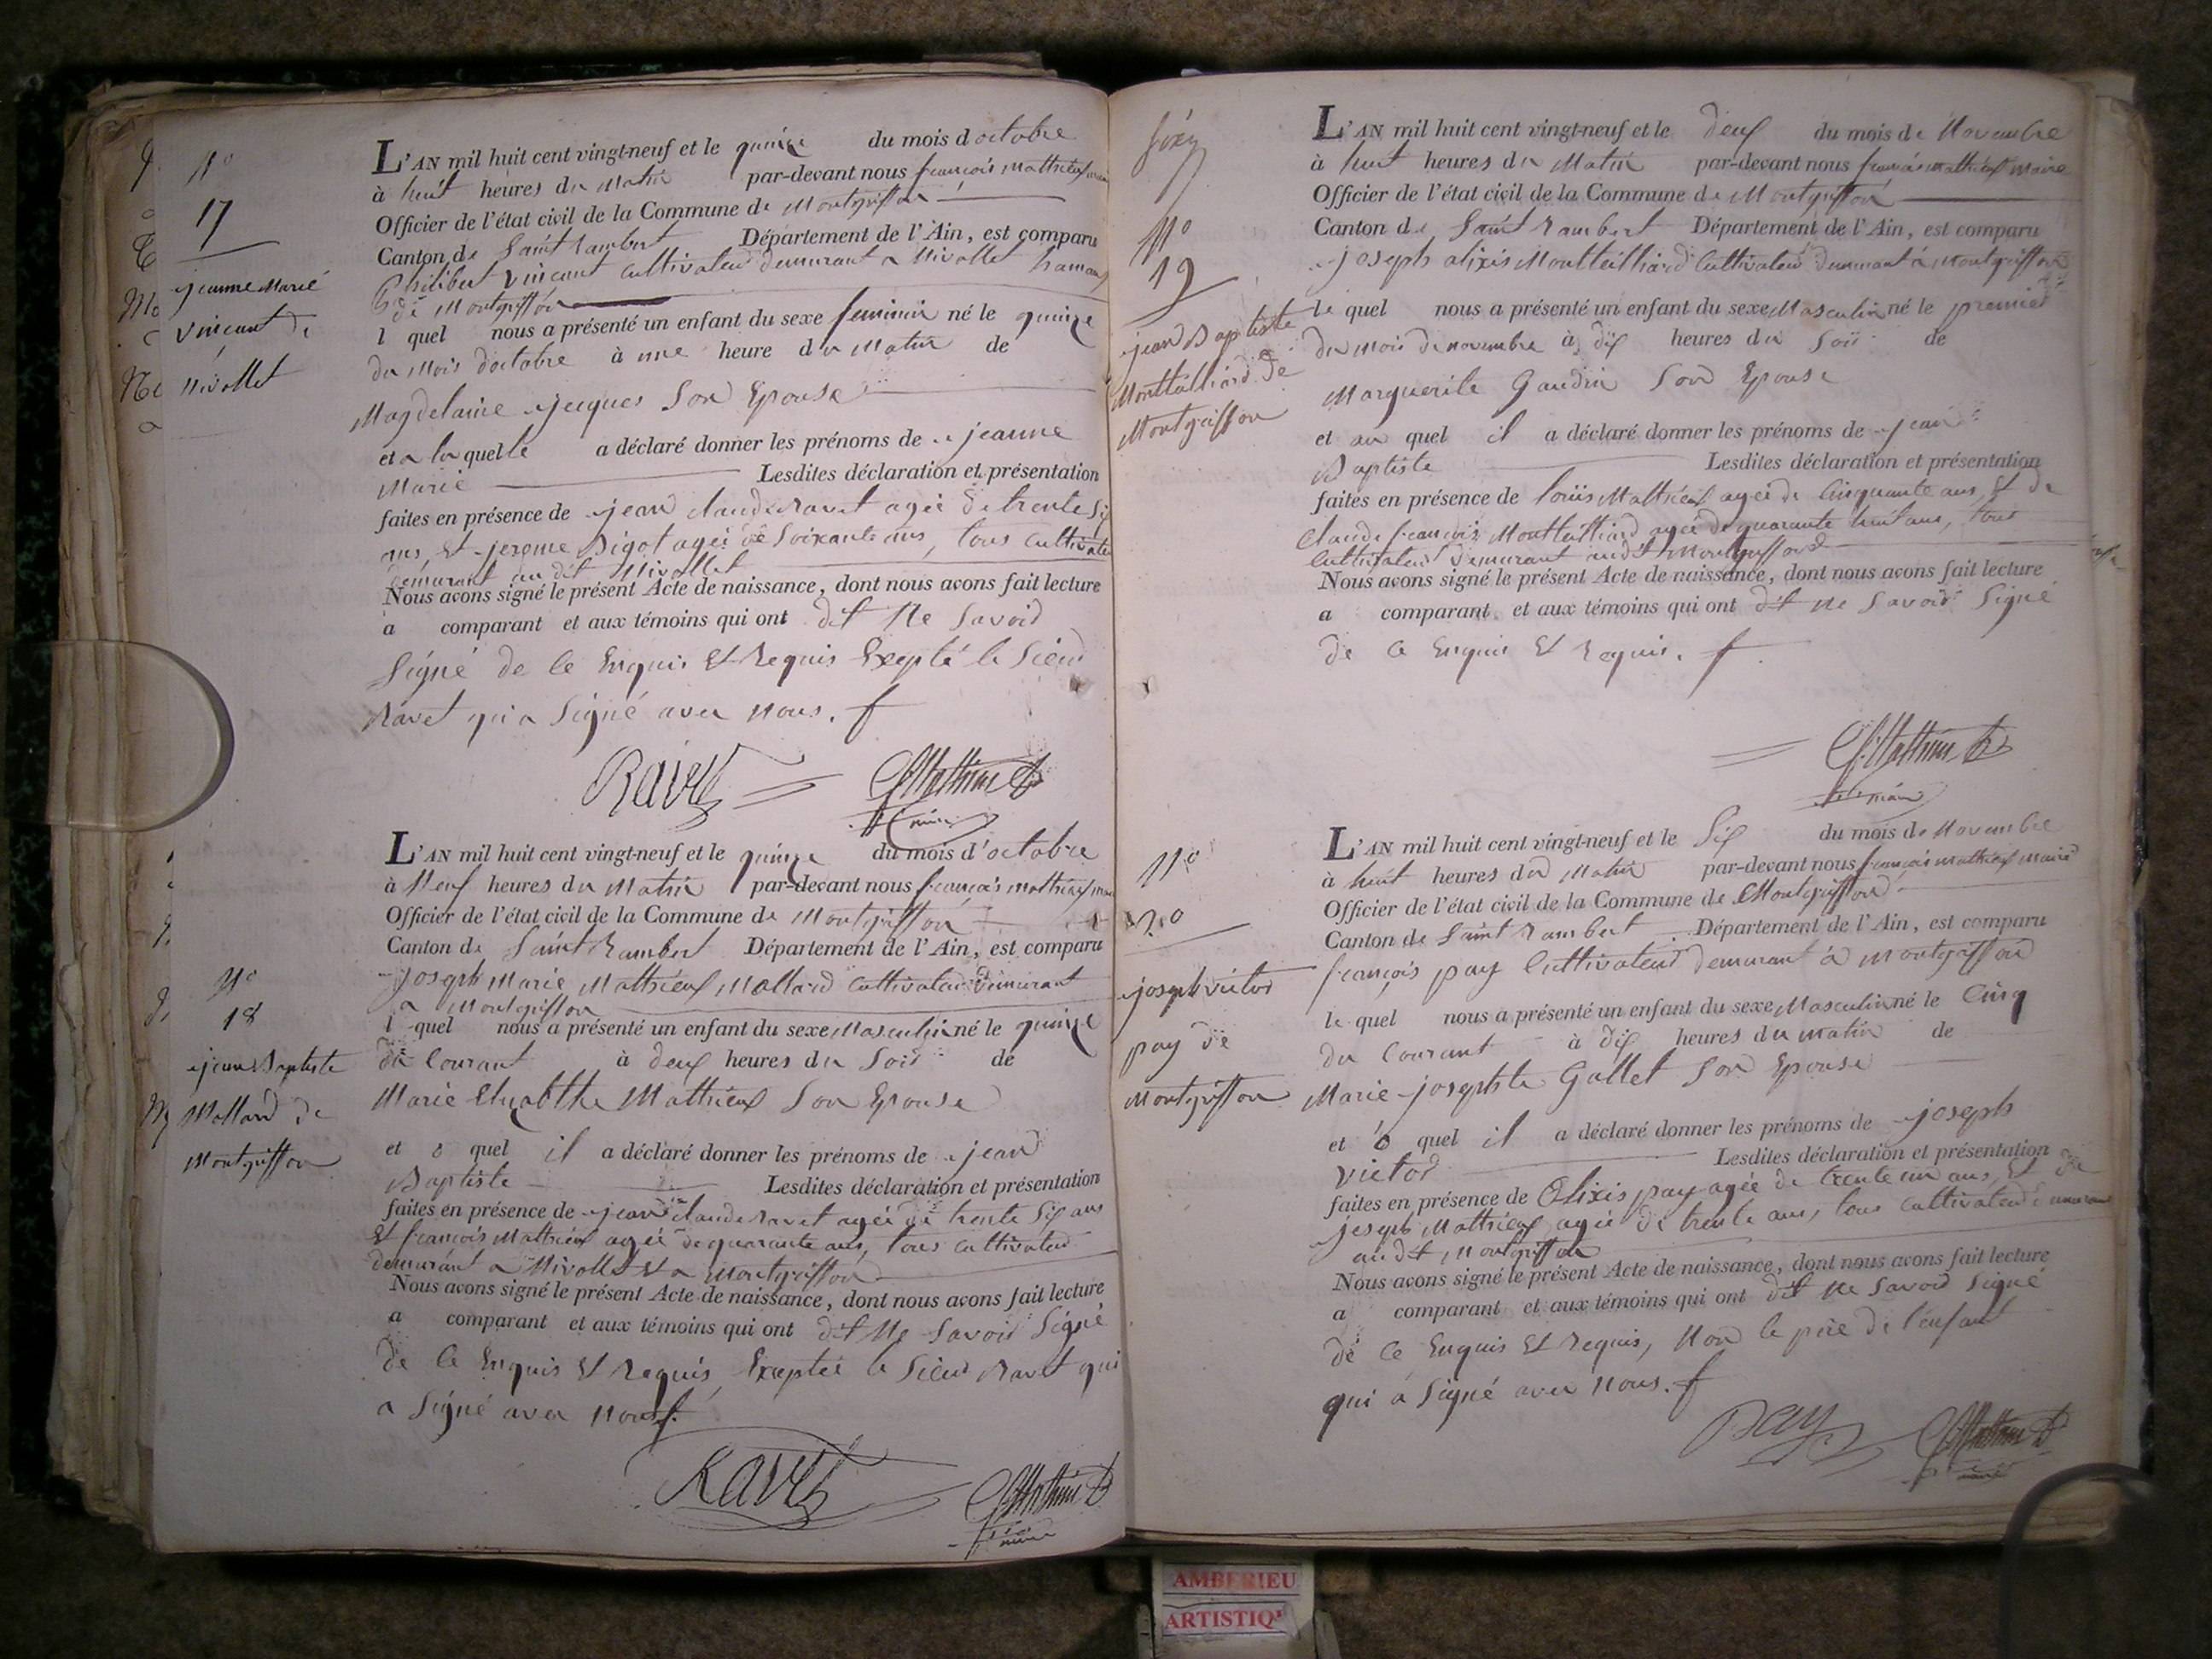 N°
17
jeanne Marie
vincent de
Nivollet
L'AN mil huit cent vingt-neuf et le quinze du mois d octobre
à huit heures du Matin par-devant nous françois Mathieux
Officier de l'état civil de la Commune de Montgriffon
Canton de Saint Rambert Département de l'Ain, est comparu
Philibert vincent Cultivateur demurant a Nivollet hamau
de Montgriffon
l quel nous a présenté un enfant du sexe feminin né le quinze
du Mois d'octobre à une heure du Matin de
Magdelaine jacques Son Epouse
et a la quelle a déclaré donner les prénoms de jeanne
Marie Lesdites déclaration et présentation
faites en présence de jean claude ravet agée de trente Six
ans, Et jerome Bigot agée de Soixante ans, tous Cultivateur
demurant au dit Nivollet
Nous avons signé le présent Acte de naissance, dont nous avons fait lecture
a comparant et aux témoins qui ont dit Ne Savoir
Signé de Ce Enquis Et Requis Excepté le Sieur
Ravet qui a Signé avec Nous.
Ravet
N°
18
jean Baptiste
Mollard de
Montgriffon
L'AN mil huit cent vingt-neuf et le quinze du mois d'octobre
à Neuf heures du Matin par-devant nous françois Mathieux
Officier de l'état civil de la Commune de Montgriffon
Canton de Saint Rambert Département de l'Ain, est comparu
Joseph Marie Mathieux Mollard Cultivateur demurant
a Montgriffon
l quel nous a présenté un enfant du sexe Masculin né le quinze
du Courant à deux heures du Soir de
Marie Elizabthe Mathieux Son Epouse
et o quel il a déclaré donner les prénoms de jean
Baptiste Lesdites déclaration et présentation
faites en présence de jean claude ravet agée de trente Six ans
Et françois Mathieux agée de quarante ans, tous Cultivateur
demurant a Nivollet & a Montgriffon
Nous avons signé le présent Acte de naissance, dont nous avons fait lecture
a comparant et aux témoins qui ont dit Ne Savoir Signé
de Ce Enquis Et Requis, Exceptée le Sieur Ravet qui
a Signé avec Nous.
Ravet
N°
19
jean Baptiste
Monttailliard de
Montgriffon
L'AN mil huit cent vingt-neuf et le deux du mois de Novembre
à huit heures du Matin par-devant nous françois Mathieux Maire
Officier de l'état civil de la Commune de Montgriffon
Canton de Saint Rambert Département de l'Ain, est comparu
Joseph alixis Montteilliard Cultivateur demurant à Montgriffon
le quel nous a présenté un enfant du sexe Masculin né le premier
du mois de novembre à dix heures du Soir de
Marguerite Gaudin Son Epouse
et au quel il a déclaré donner les prénoms de jean
Baptiste Lesdites déclaration et présentation
faites en présence de Louis Mathieux agée de Cinquante ans, Et de
Claude françois Montteilliard agée de quarante huit ans, tous
Cultivateur demurant audit Montgriffon
Nous avons signé le présent Acte de naissance, dont nous avons fait lecture
a comparant et aux témoins qui ont dit Ne Savoir Signé
de Ce Enquis Et Requis.
N°
20
joseph victor
pay de
Montgriffon
L'AN mil huit cent vingt-neuf et le Six du mois de Novembre
à huit heures du Matin par-devant nous françois Mathieux Maire
Officier de l'état civil de la Commune de Montgriffon
Canton de Saint Rambert Département de l'Ain, est comparu
françois pay Cultivateur demurant à Montgriffon
le quel nous a présenté un enfant du sexe Masculin né le Cinq
du Courant à dix heures du matin de
Marie josephte Gallet Son Epouse
et o quel il a déclaré donner les prénoms de joseph
victor Lesdites déclaration et présentation
faites en présence de Olixis pay agée de trente un ans, Et de
joseph Mathieux agée de trente ans, tous Cultivateur demurant
au dit Montgriffon
Nous avons signé le présent Acte de naissance, dont nous avons fait lecture
a comparant et aux témoins qui ont dit Ne Savoir Signé
de Ce Enquis Et Requis, Non le père de l'enfant
qui a Signé avec Nous.
Pay
AMBERIEU
ARTISTIQ